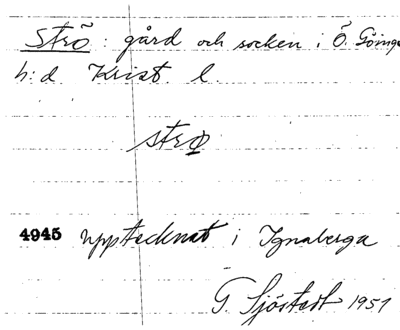 Strö : gård och socken i Ö. Göinge
h:d Krist. l.
strø
4945 upptecknat i Ignaberga
G. Sjöstedt 1951